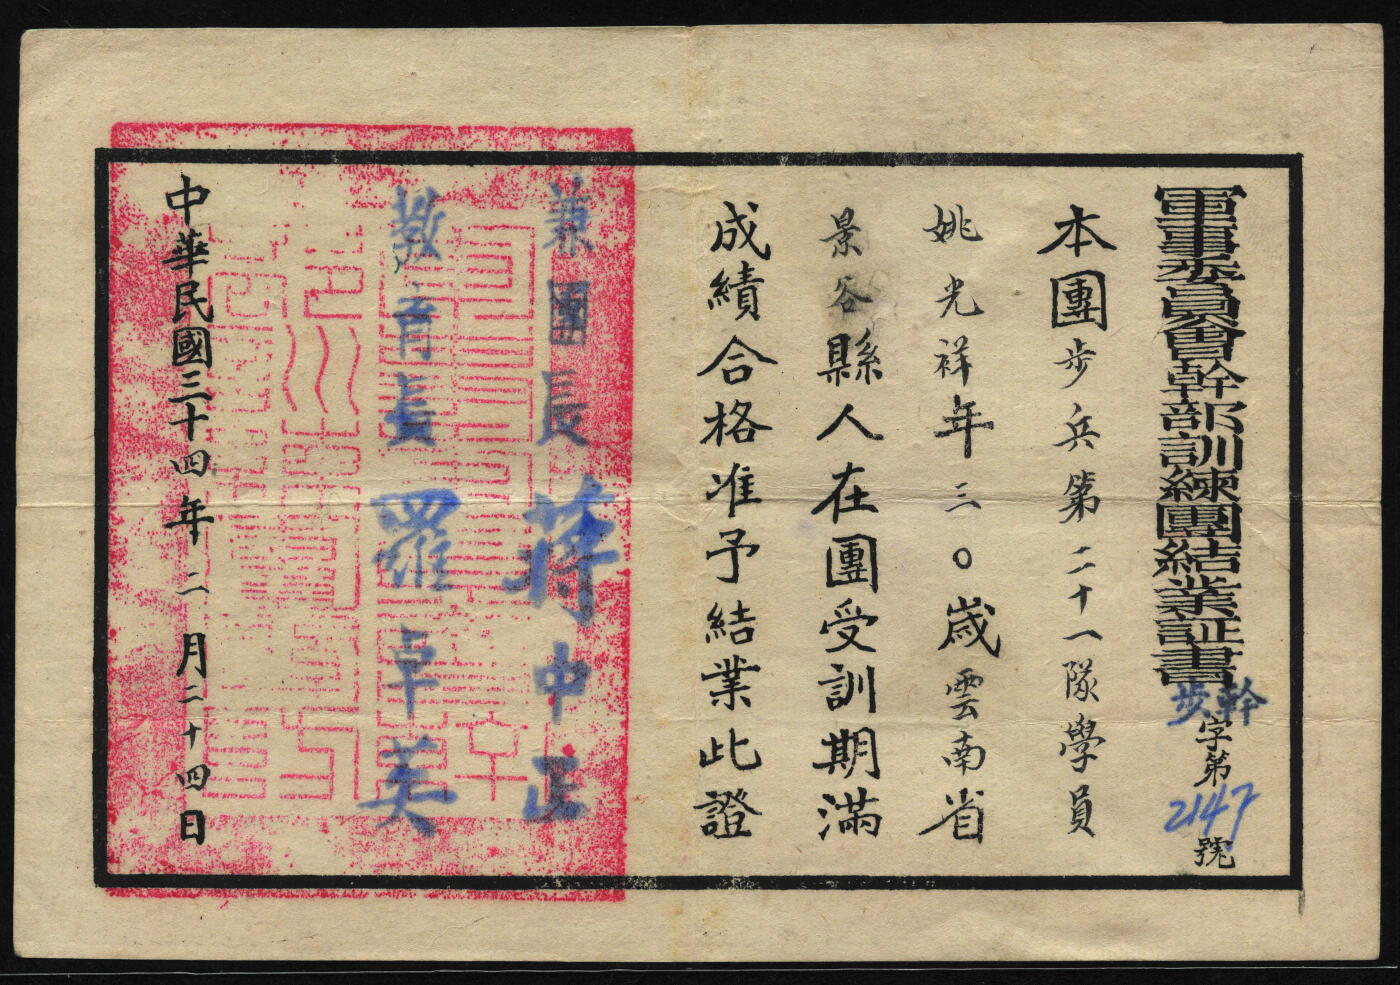 軍事委員會幹部訓練團結業証書
幹步字第2147號
本團步兵第二十一隊學員
姚光祥年三〇歲雲南省
景谷縣人在團受訓期滿
成績合格准予結業此證
兼團長 蔣中正
教育長 羅卓英
中華民國三十四年二月二十四日